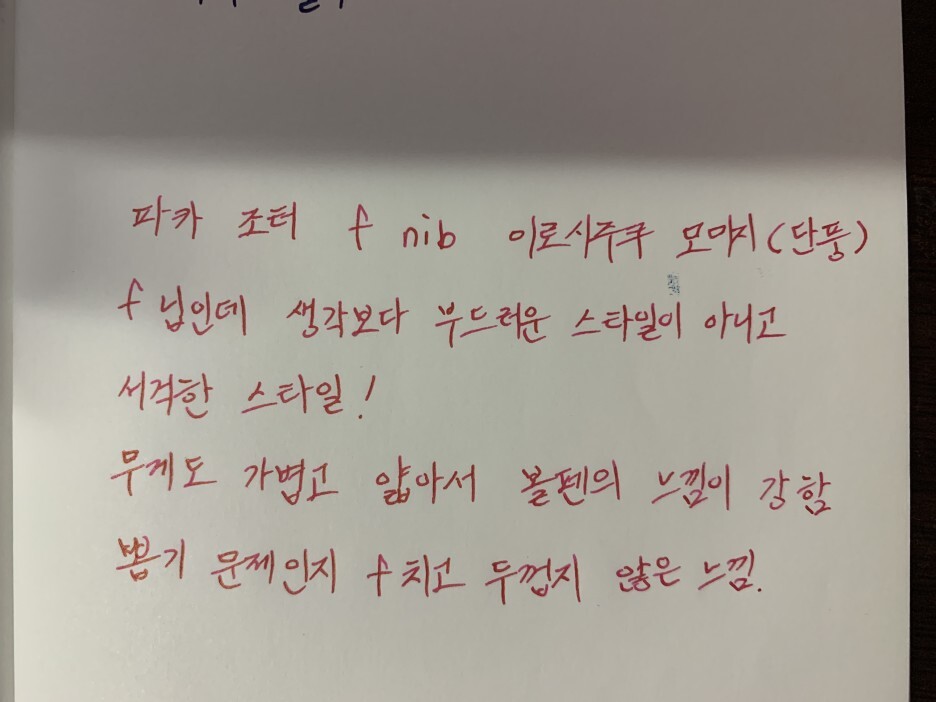 파카 조터 f nib 이로시주쿠 모미지(단풍)
f 닙인데 생각보다 부드러운 스타일이 아니고
서걱한 스타일!
무게도 가볍고 얇아서 볼펜의 느낌이 강함
뽑기 문제인지 f치고 두껍지 않은 느낌.